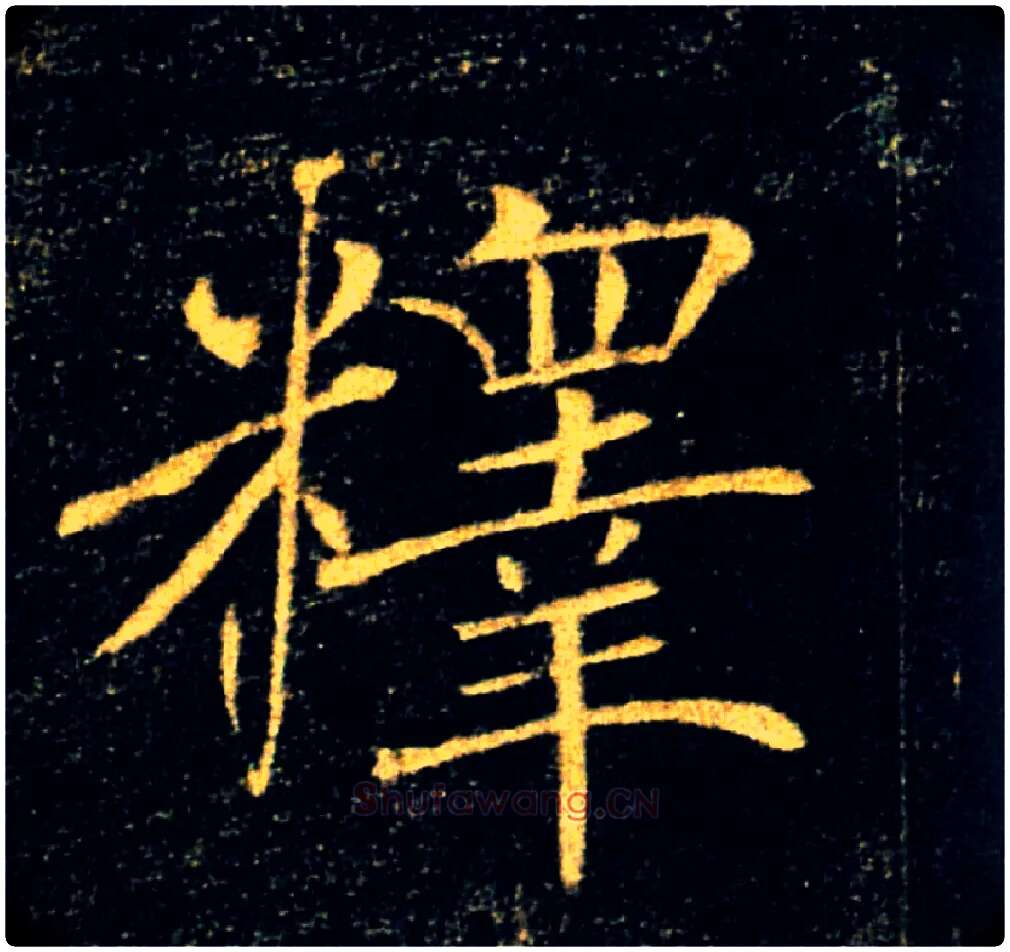 釋
Shufawang.CN